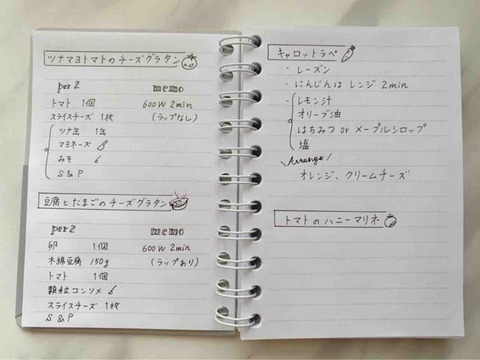 ツナマヨトマトのチーズグラタン
per2 memo
トマト 1個 600W 2min
スライスチーズ 1枚 (ラップなし)
ツナ缶 1缶
マヨネーズ
みそ
S&P
豆腐とたまごのチーズグラタン
per2 memo
卵 1個 600W 2min
木綿豆腐 150g (ラップあり)
トマト 1個
顆粒コンソメ
スライスチーズ 1枚
S&P
キャロットラペ
・レーズン
・にんじんは レンジ 2min
・レモン汁
オリーブ油
はちみつ or メープルシロップ
塩
\Arrange/
オレンジ、クリームチーズ
トマトのハニーマリネ